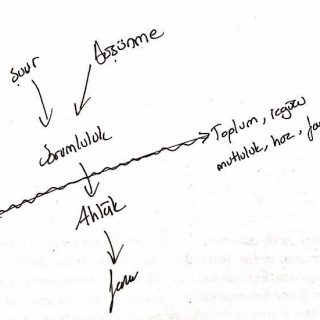 şuur
Düşünme
Sorumluluk
Toplum,
mutluluk, haz,
Ahlâk